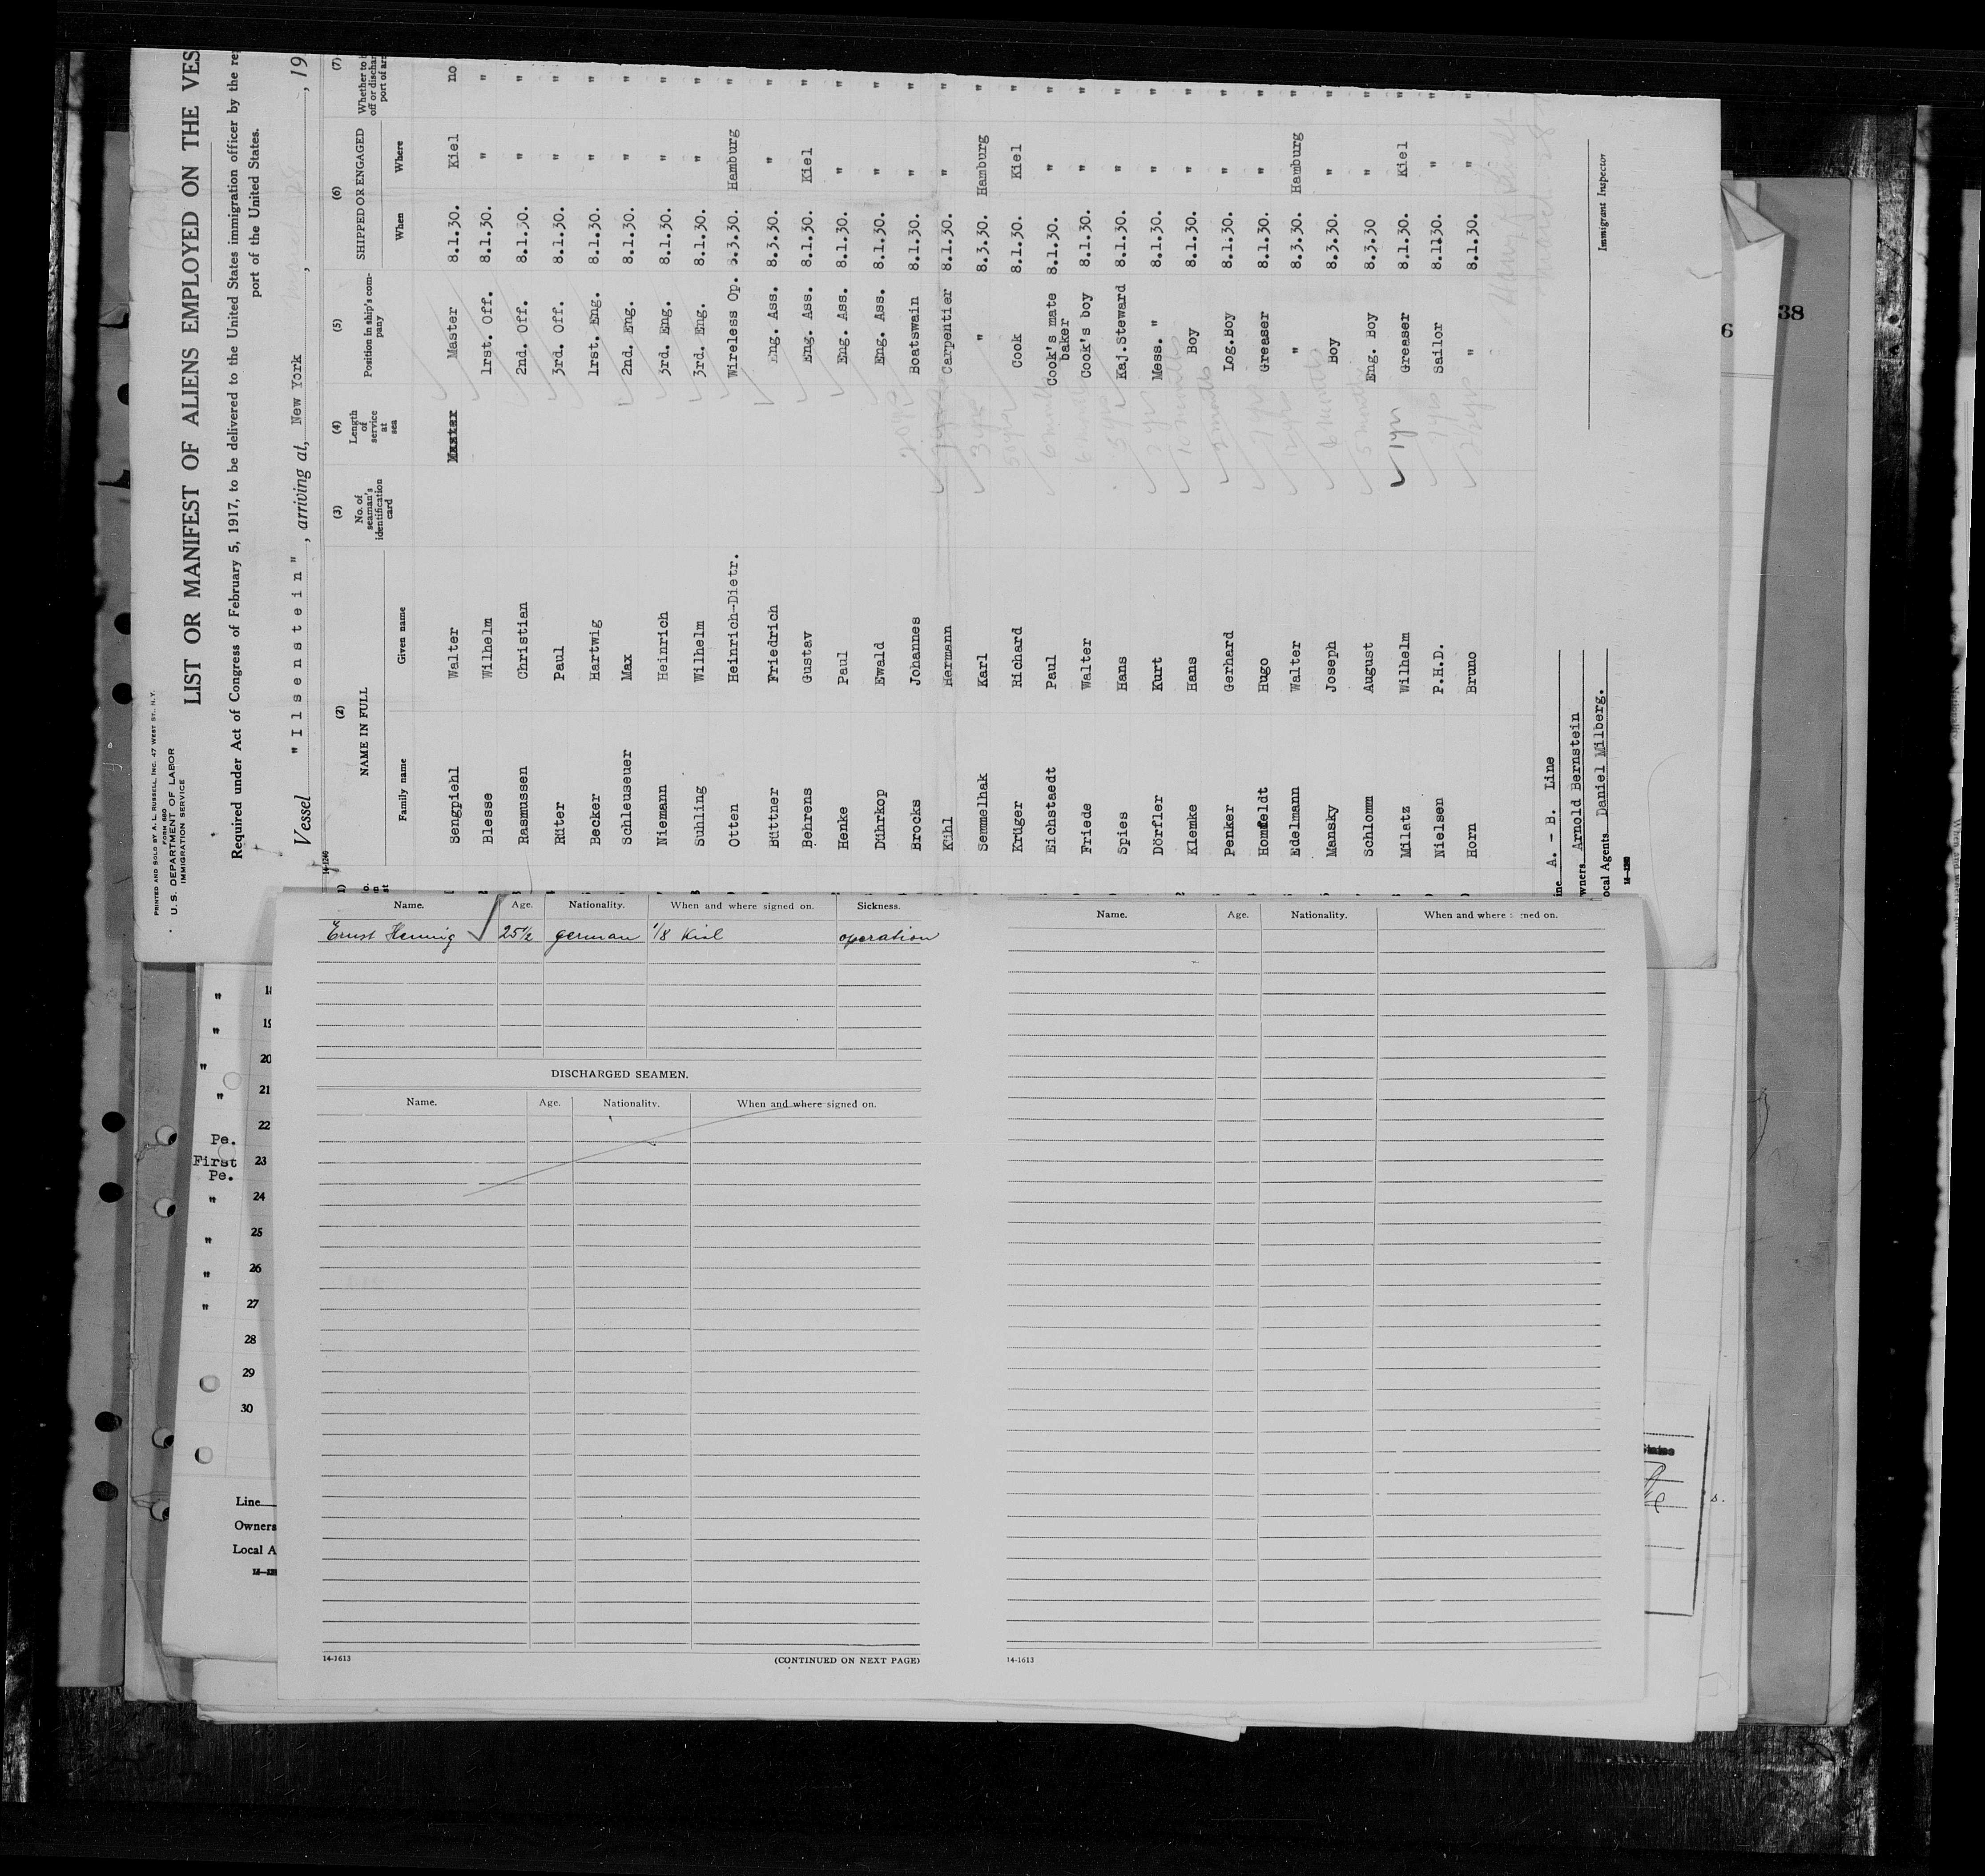 PRINTED AND SOLD BY A. L. RUSSELL, INC. 47 WEST ST., N.Y.
FORM 680
U. S. DEPARTMENT OF LABOR
IMMIGRATION SERVICE
LIST OR MANIFEST OF ALIENS EMPLOYED ON THE VES
Required under Act of Congress of February 5, 1917, to be delivered to the United States immigration officer by the re
port of the United States.
Vessel "Ilsenstein", arriving at, New York, 19
14-1240
(2) (3) (4) (5) (6) (7)
NAME IN FULL No. of seaman's identification card Length of service at sea Position in ship's company SHIPPED OR ENGAGED Whether to b off or dischar port of ar
Family name Given name When Where
Sengpiehl Walter Master Master 8.1.30. Kiel no
Blesse Wilhelm 1rst. Off. 8.1.30. " "
Rasmussen Christian 2nd. Off. 8.1.30. " "
Rüter Paul 3rd. Off. 8.1.30. " "
Becker Hartwig 1rst. Eng. 8.1.30. " "
Schleuseuer Max 2nd. Eng. 8.1.30. " "
Niemann Heinrich 3rd. Eng. 8.1.30. " "
Suhling Wilhelm 3rd. Eng. 8.1.30. " "
Otten Heinrich-Dietr. Wireless Op. 8.3.30. Hamburg "
Büttner Friedrich Eng. Ass. 8.3.30. " "
Behrens Gustav Eng. Ass. 8.1.30. Kiel "
Henke Paul Eng. Ass. 8.1.30. " "
Dührkop Ewald Eng. Ass. 8.1.30. " "
Brocks Johannes Boatswain 8.1.30. " "
Kühl Hermann Carpentier 8.1.30. " "
Semmelhak Karl 3 yrs " 8.3.30. Hamburg "
Krüger Richard Cook 8.1.30. Kiel "
Eichstaedt Paul Cook's mate baker 8.1.30. " "
Friede Walter Cook's boy 8.1.30. " "
Spies Hans Kaj.Steward 8.1.30. " "
Dörfler Kurt Mess. " 8.1.30. " "
Klemke Hans Boy 8.1.30. " "
Penker Gerhard Log.Boy 8.1.30. " "
Homfeldt Hugo Greaser 8.1.30. " "
Edelmann Walter " 8.3.30. Hamburg "
Mansky Joseph 6 months Boy 8.3.30. " "
Schlomm August 5 months Eng. Boy 8.3.30 " "
Milatz Wilhelm 1 yr Greaser 8.1.30. Kiel "
Nielsen P.H.D. Sailor 8.1130. " "
Horn Bruno " 8.1.30. " "
ine A. - B. Line
wners Arnold Bernstein
ocal Agents Daniel Milberg.
Immigrant Inspector
38
6
Name. Age. Nationality. When and where signed on. Sickness.
Ernst Hennig 25½ german 1/8 Kiel operation
DISCHARGED SEAMEN.
Name. Age. Nationality. When and where signed on.
14-1613
(CONTINUED ON NEXT PAGE)
Name. Age. Nationality. When and where signed on.
14-1613
" 18
" 19
" 20
" 21
22
Pe.
First 23
Pe.
" 24
" 25
" 26
" 27
28
29
30
Line
Owners
Local A
s.